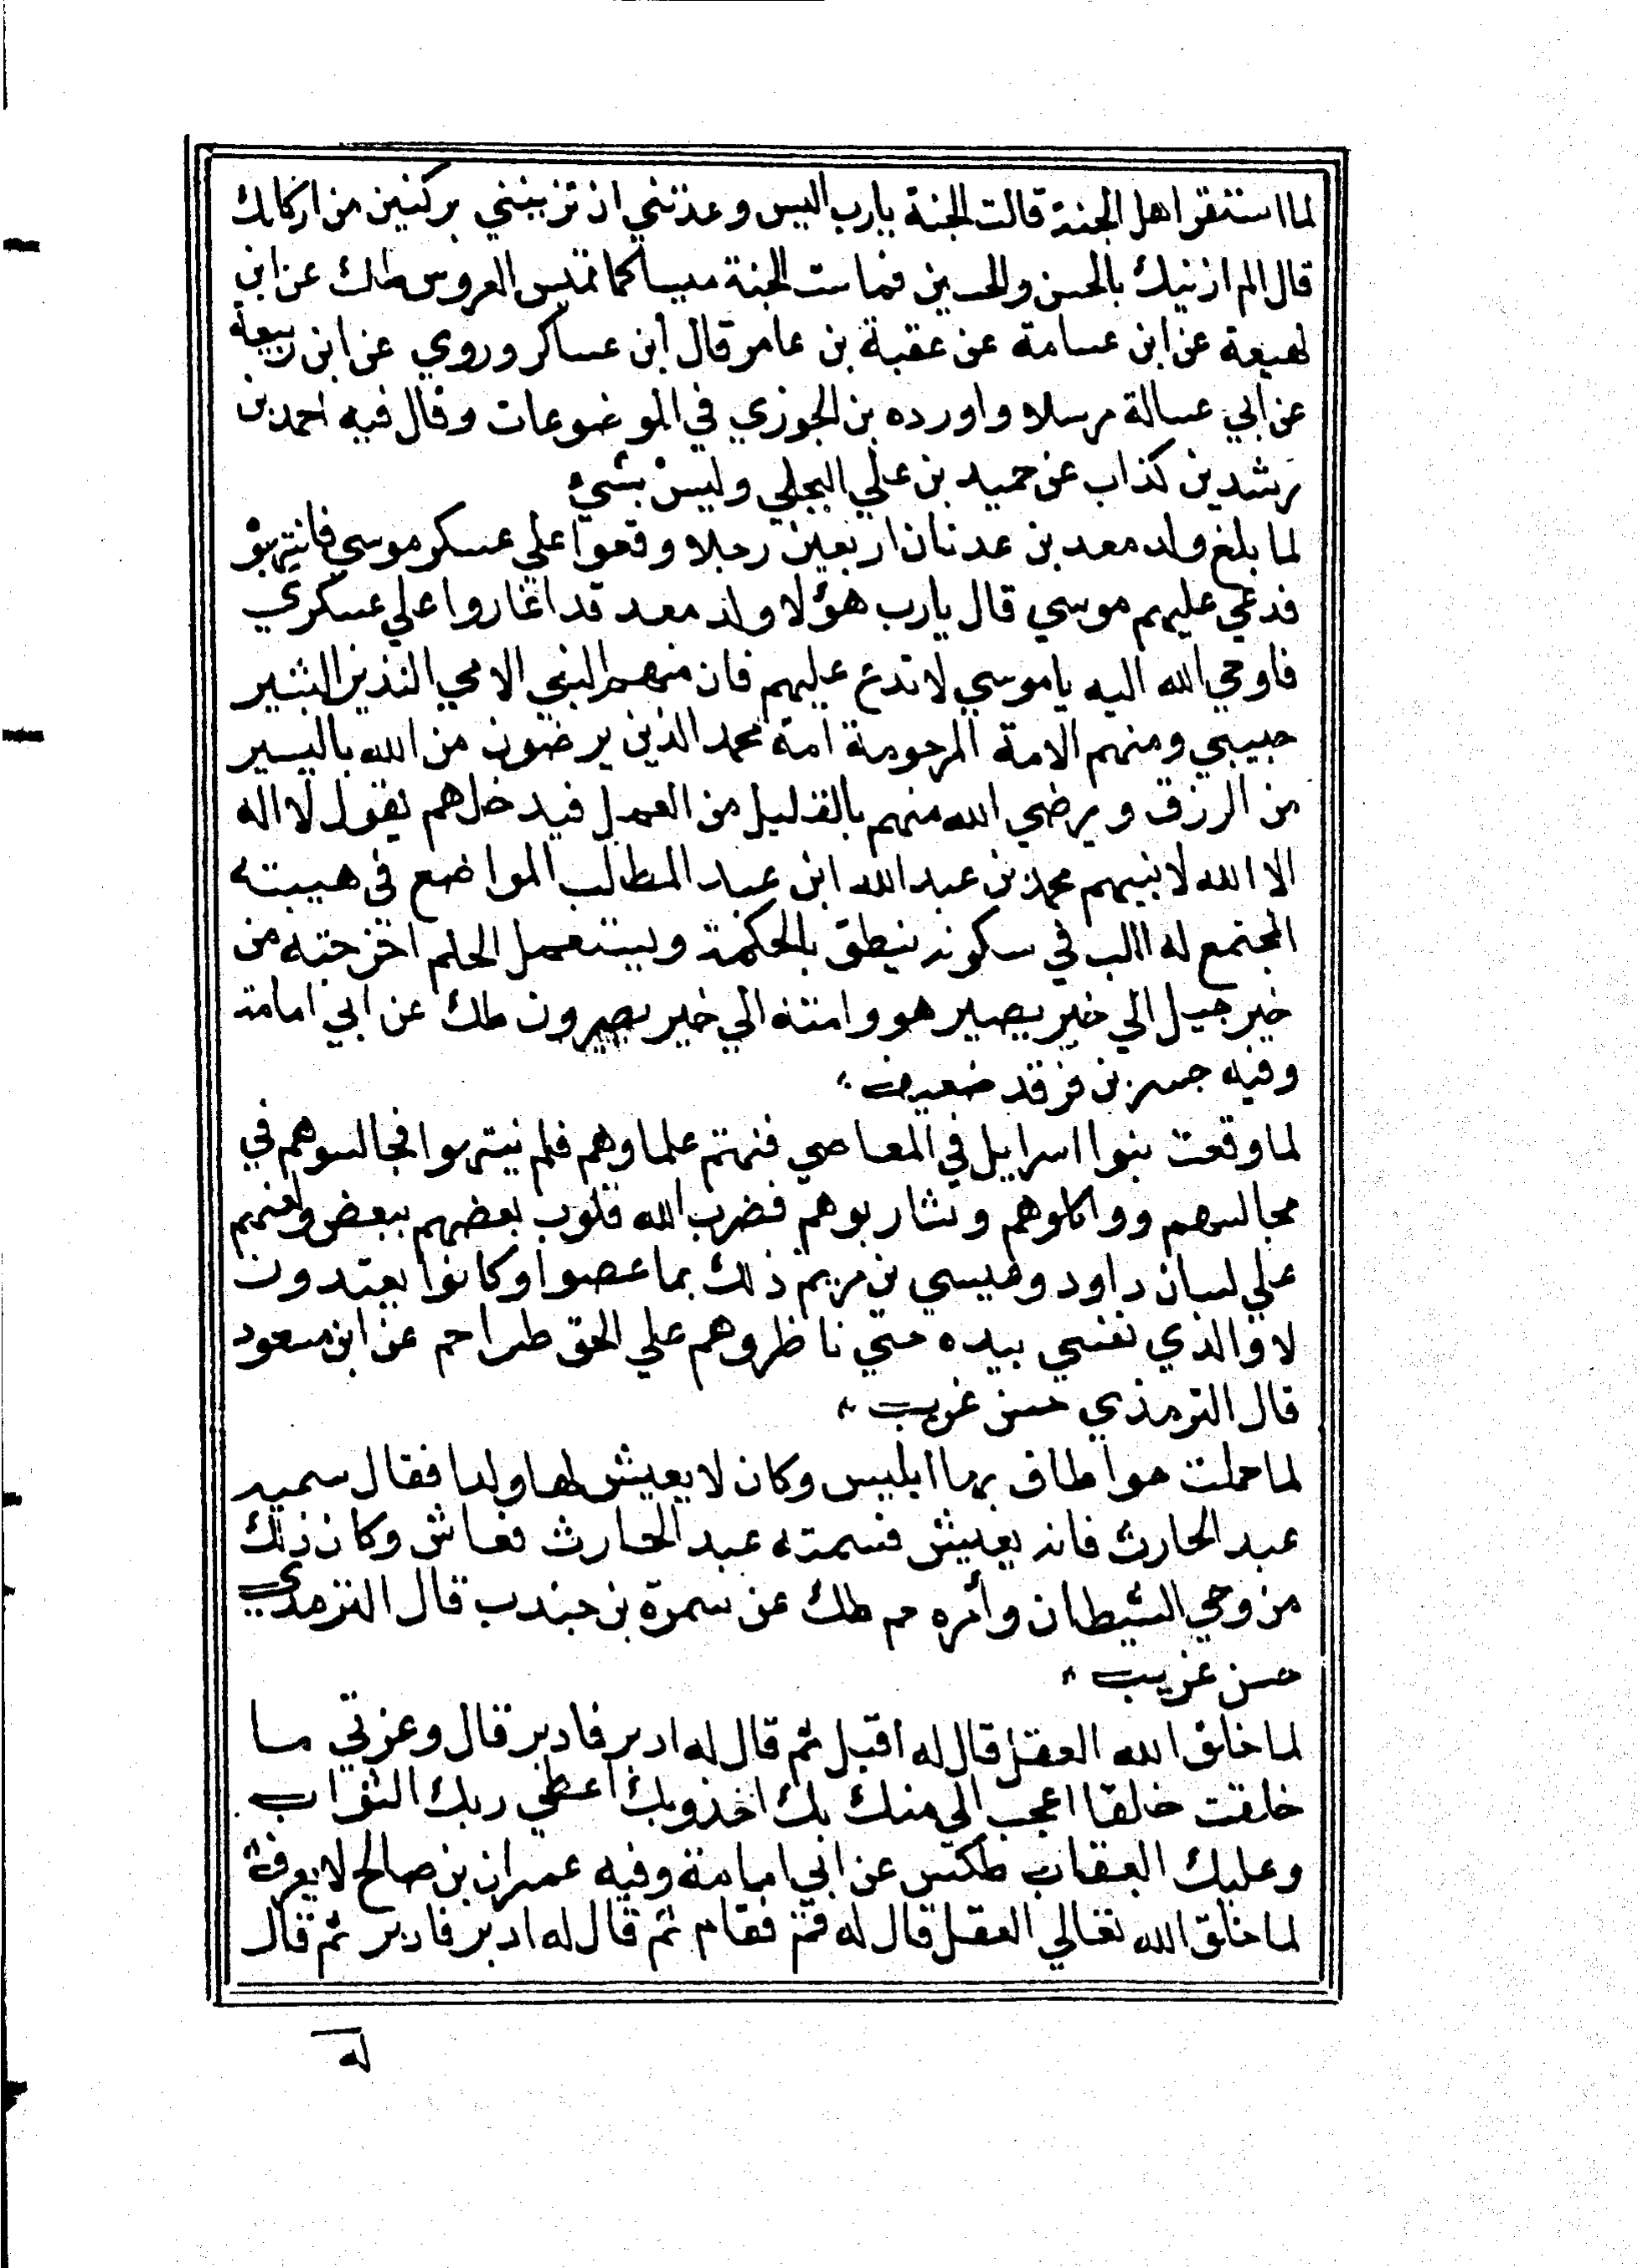 لما استقر اهل الجنة قالت الجنة يارب اليس وعدتني ان تزينني بركنين من اركانك
قال الم ازنيك بالحسن والحسين فماست الجنة ميسا كما تميس العروس طك عن ابن
لهيعة عن ابن عسامة عن عقبة بن عامر قال ابن عساكر وروي عن ابن ربيعة
عن ابي عسالة مرسلا واورده بن الجوزي في الموضوعات وقال فيه احمد بن
رشدين كذاب عن حميد بن علي البجلي وليس بشيء
لما بلغ ولد معد بن عدنان اربعين رجلا وقعوا علي عسكر موسي فانتهبو
فدعي عليهم موسي قال يارب هؤلا ولد معد قد اغاروا علي عسكري
فاوحي الله اليه ياموسي لا تدع عليهم فان منهم النبي الامي النذير البشير
حبيبي ومنهم الامة المرحومة امة محمد الذين يرضون من الله باليسير
من الرزق ويرضي الله منهم بالقليل من العمل فيدخلهم بقول لا اله
الا الله لا نبيهم محمد بن عبد الله ابن عبد المطلب المواضع في هيبته
المجتمع له اللب في سكونه ينطق بالحكمة ويستعمل الحلم اخرجته من
خير جيل الي خير يصير هو وامته الي خير يصيرون طك عن ابي امامة
وفيه جسر بن فرقد ضعيف
لما وقعت بنوا اسرايل في المعاصي فنهتم علماوهم فلم ينتهوا فجالسوهم في
مجالسهم وواكلوهم وشاربوهم فضرب الله قلوب بعضهم ببعض ولعنهم
علي لسان داود وعيسي بن مريم ذلك بما عصوا وكانوا يعتدون
لا والذي نفسي بيده حتي ناظروهم علي الحق طراحم عن ابن مسعود
قال الترمذي حسن غريب
لما حملت حوا طاف بها ابليس وكان لا يعيش لها ولدا فقال سميه
عبد الحارث فانه يعيش فسمته عبد الحارث فعاش وكان ذلك
من وحي الشيطان وأمره حم طك عن سمرة بن جندب قال الترمذي
حسن غريب
لما خلق الله العقل قال له اقبل ثم قال له ادبر فادبر قال وعزتي ما
خلقت خلقا اعجب الي منك بك اخذ وبك اعطي ربك الثواب
وعليك العقاب طكس عن ابي امامة وفيه عمران بن صالح لايعرف
لما خلق الله تعالي العقل قال له قم فقام ثم قال له ادبر فادبر ثم قال
له